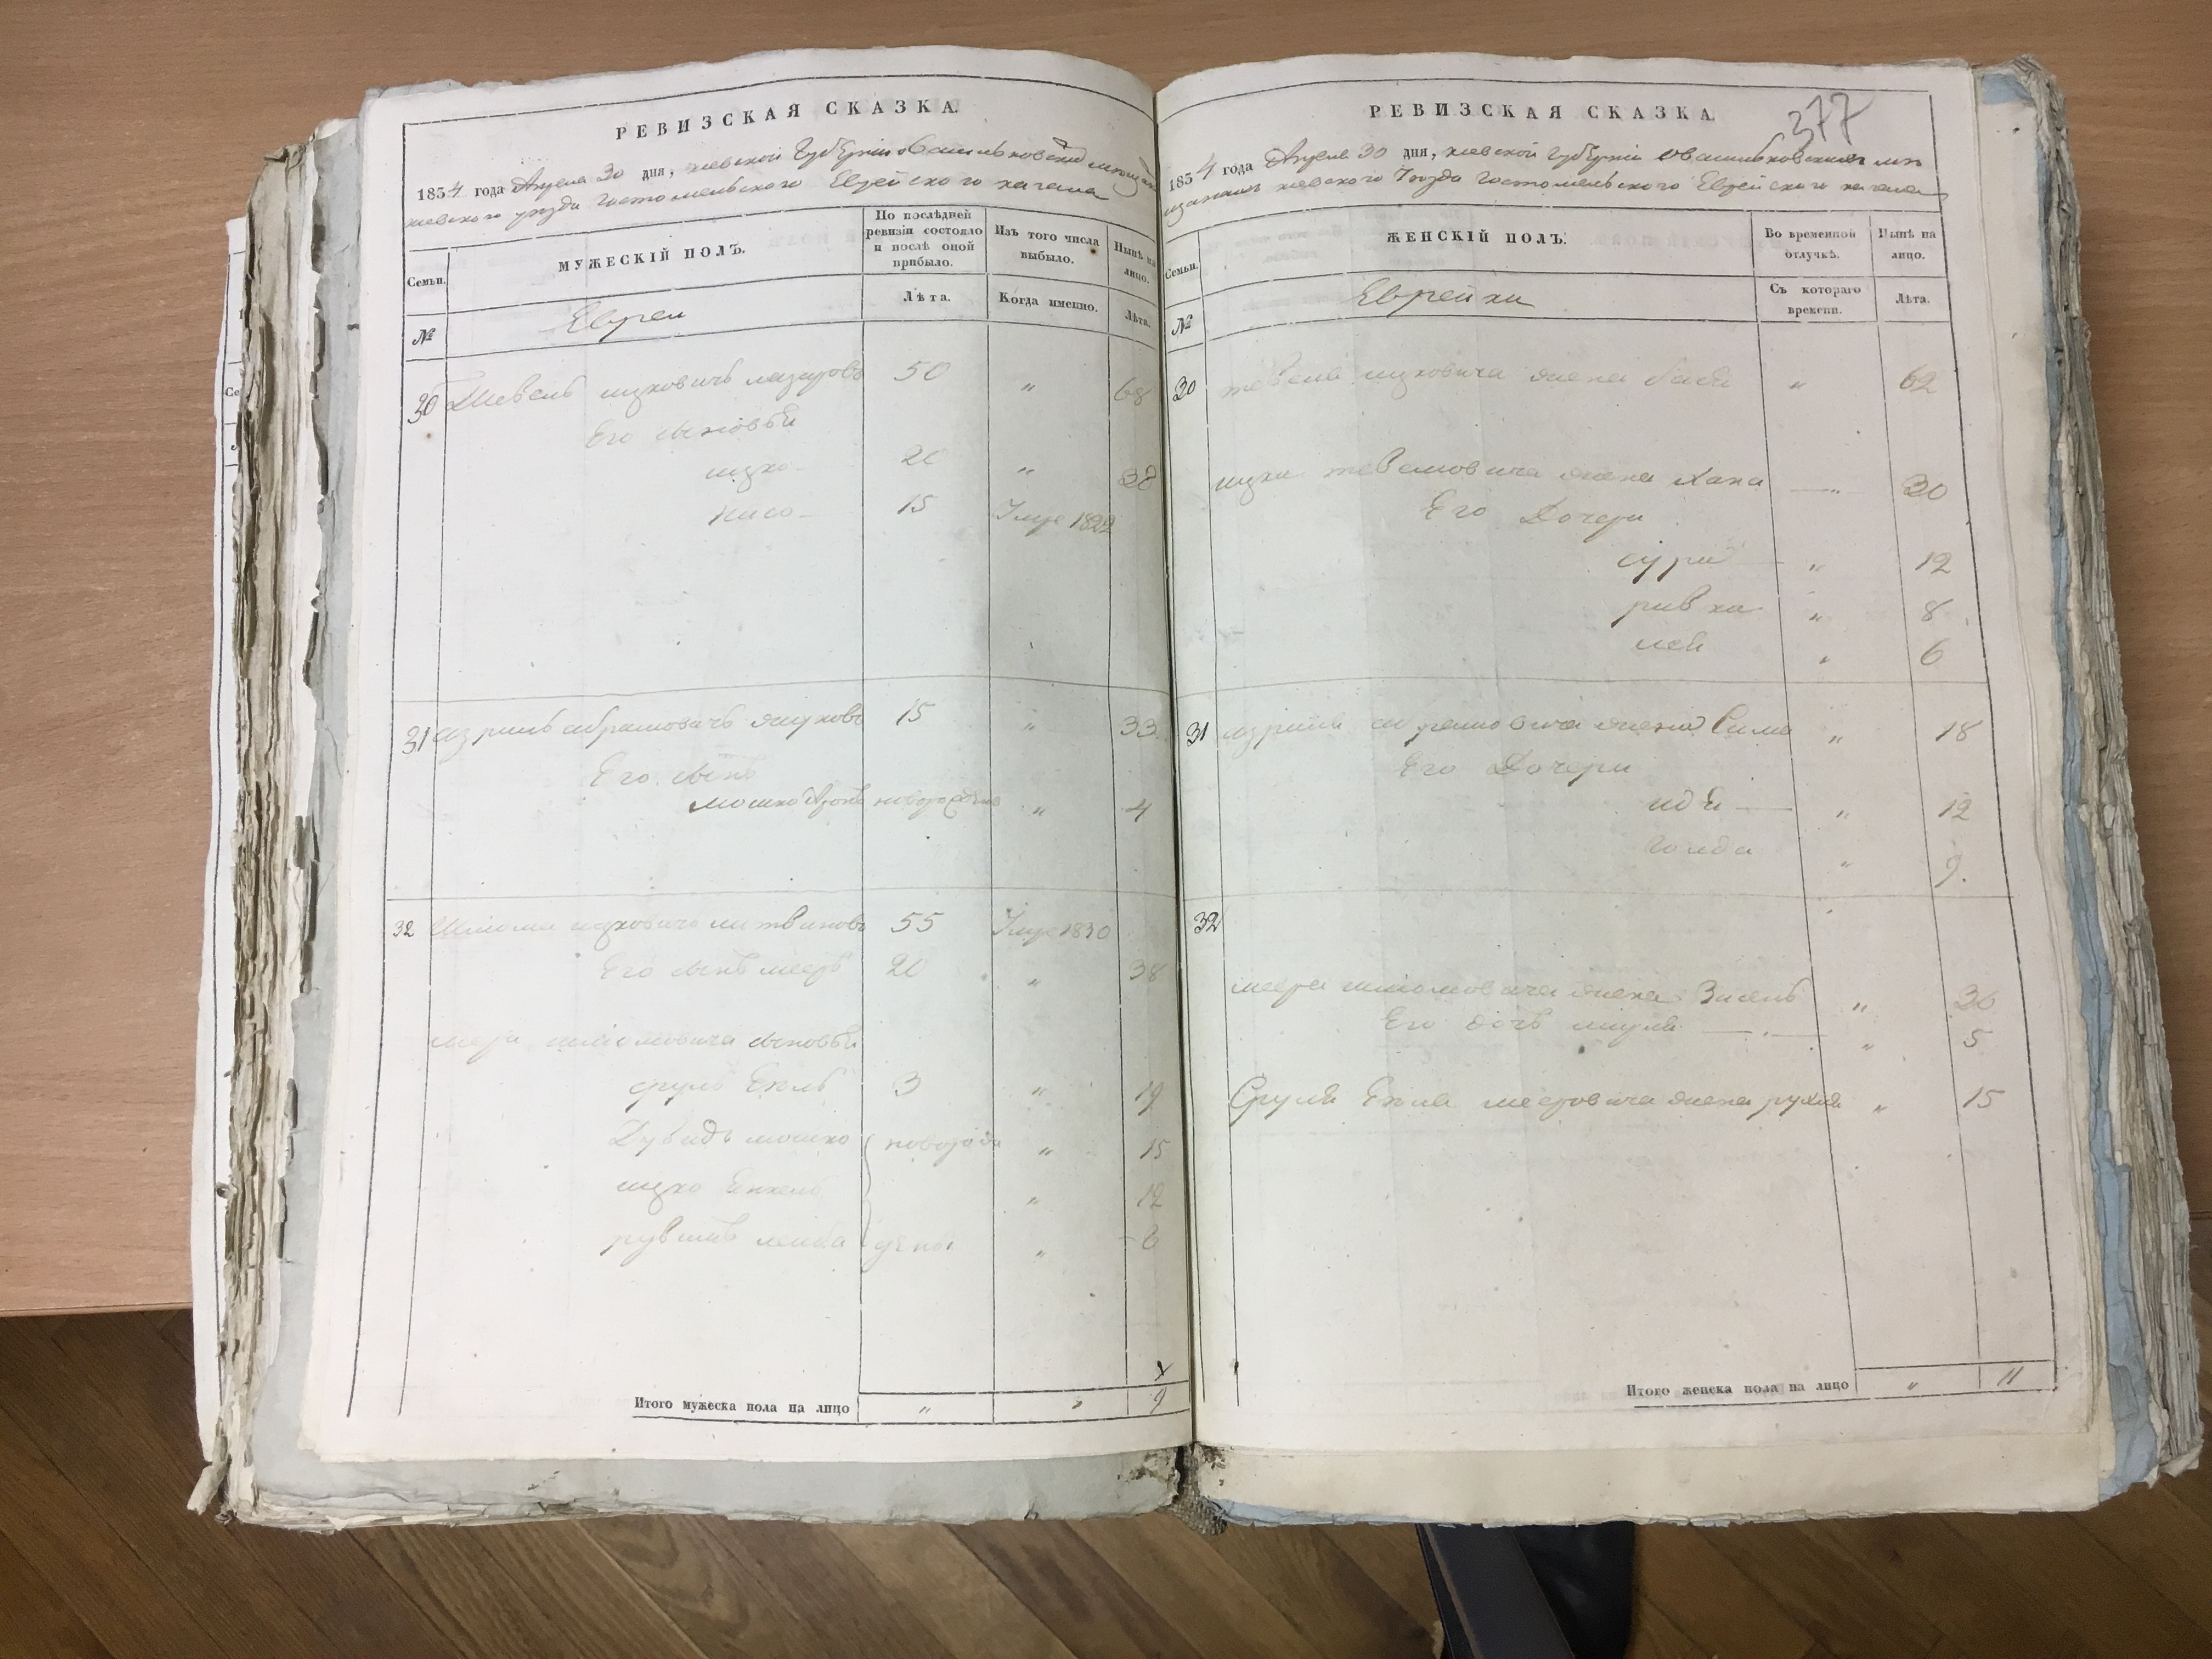 РЕВИЗСКАЯ СКАЗКА.
1834 года Апреля 30 дня, киевской Губернии о васильковских
киевского уезда Гостомельского Еврейского кагала
Семьи.
МУЖЕСКІЙ ПОЛЪ.
По послѣдней ревизіи состояло и послѣ оной прибыло.
Изъ того числа выбыло.
Нынѣ на лицо.
№
Евреи
Лѣта.
Когда именно.
Лѣта.
30 ицковичъ лазаровъ 50 " 68
Его сыновья
ицко - 20 " 38
15 1822
31 азриль абрамовичъ 15 " 33
Его сынъ
мошко Аронъ новорожденъ " 4
32 Шлома ицковичъ литвиновъ 55 1830
Его сынъ меер 20 " 38
меера шломовича сыновья
сруль Екель 3 " 19
Дувидъ мошко новорож " 15
ицко Янкель " 12
рувинъ лейба дены " 8
Итого мужеска пола на лицо " " 9
377
РЕВИЗСКАЯ СКАЗКА.
1834 года Апреля 30 дня, киевской Губернии о васильковских мещанах киевского уезда Гостомельского Еврейского кагала
Семьи.
ЖЕНСКІЙ ПОЛЪ.
Во временной отлучкѣ.
Нынѣ на лицо.
№
Еврейки
Съ котораго времени.
Лѣта.
30 тевеля ицковича жена " 62
ицки тевелиовича жена хана " 30
Его Дочери
сура " 12
ривка " 8
лея " 6
31 азриля абрамовича жена Сима " 18
Его Дочери
идя " 12
голда " 9.
32
меера шломовича жена Зисель " 36
Его дочь " 5
Сруля Екиля мееровича жена рухля " 15
Итого женска пола на лицо " 11